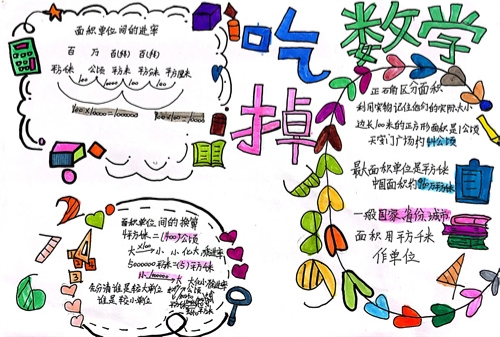 吃
掉
数学
面积单位间的进率
百 万 百(100) 百(100)
平方千米 公顷 平方米 平方分米 平方厘米
100 100
100×10000=1000000
正确区分面积
利用实物记住他们的实际大小
边长100米的正方形面积是1公顷
天安门广场约44公顷
最大面积单位是平方千米
中国面积约960万平方千米
一般国家、省份、城市
面积用平方千米
作单位
面积单位间的换算
4平方千米=(400)公顷
大 ×100 小 小化大÷进率
5000000平方米=(5)平方千米
小 ÷1000000 大 大化小×进率
先分清谁是较大单位
谁是较小单位